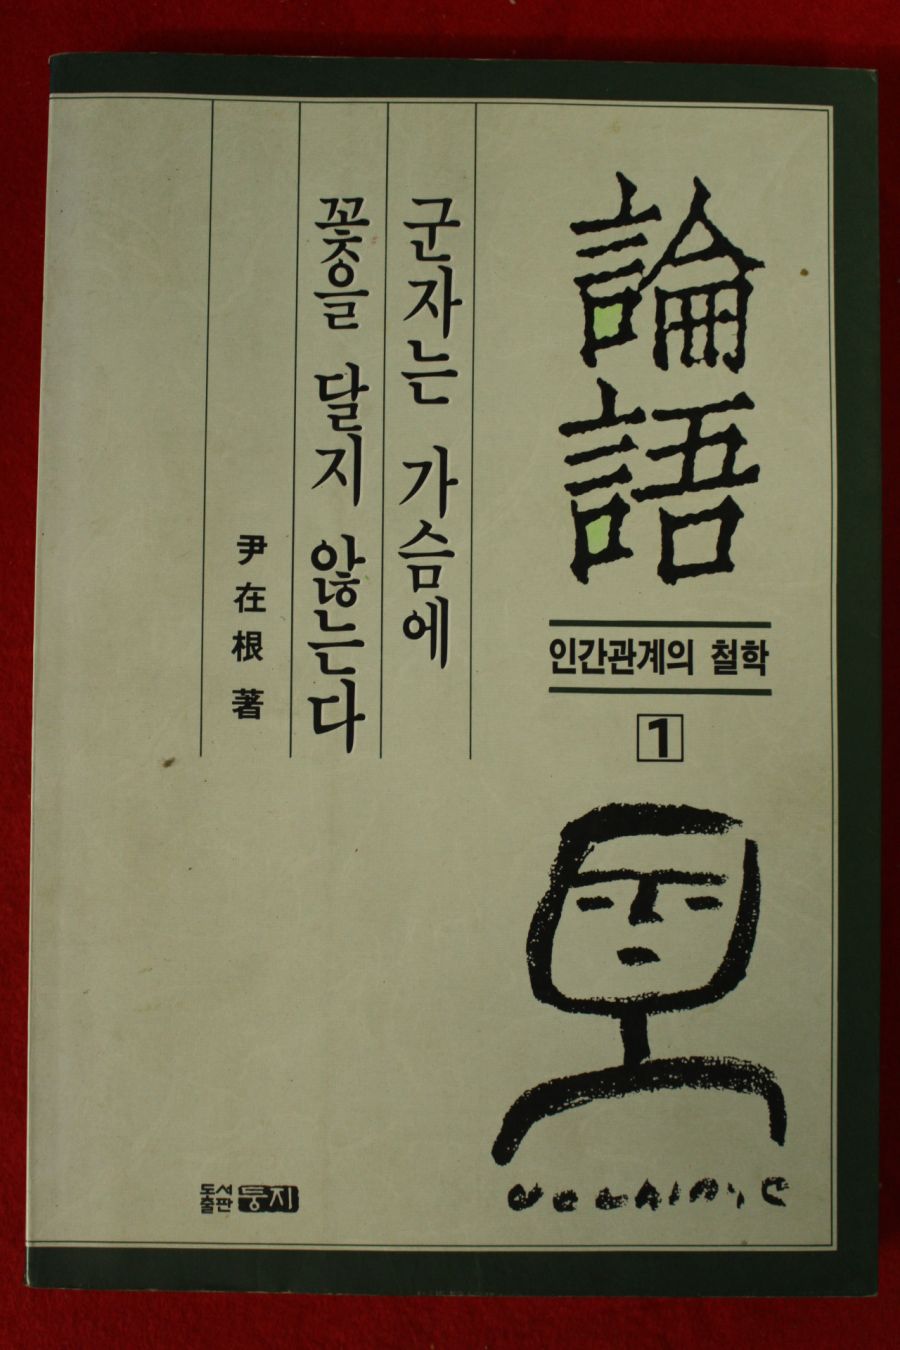 論語
인간관계의 철학
1
군자는 가슴에
꽃을 달지 않는다
尹在根 著
도서
출판 둥지